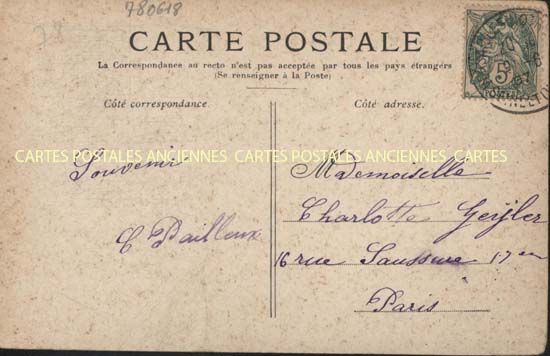 780618
CARTE POSTALE
La Correspondance au recto n'est pas acceptée par tous les pays étrangers
(Se renseigner à la Poste)
Côté correspondance.
Côté adresse.
CARTES POSTALES ANCIENNES CARTES POSTALES ANCIENNES CARTES
Souvenir
C Bailleux
Mademoiselle
Charlotte
16 rue Saussure 17 em
Paris
5